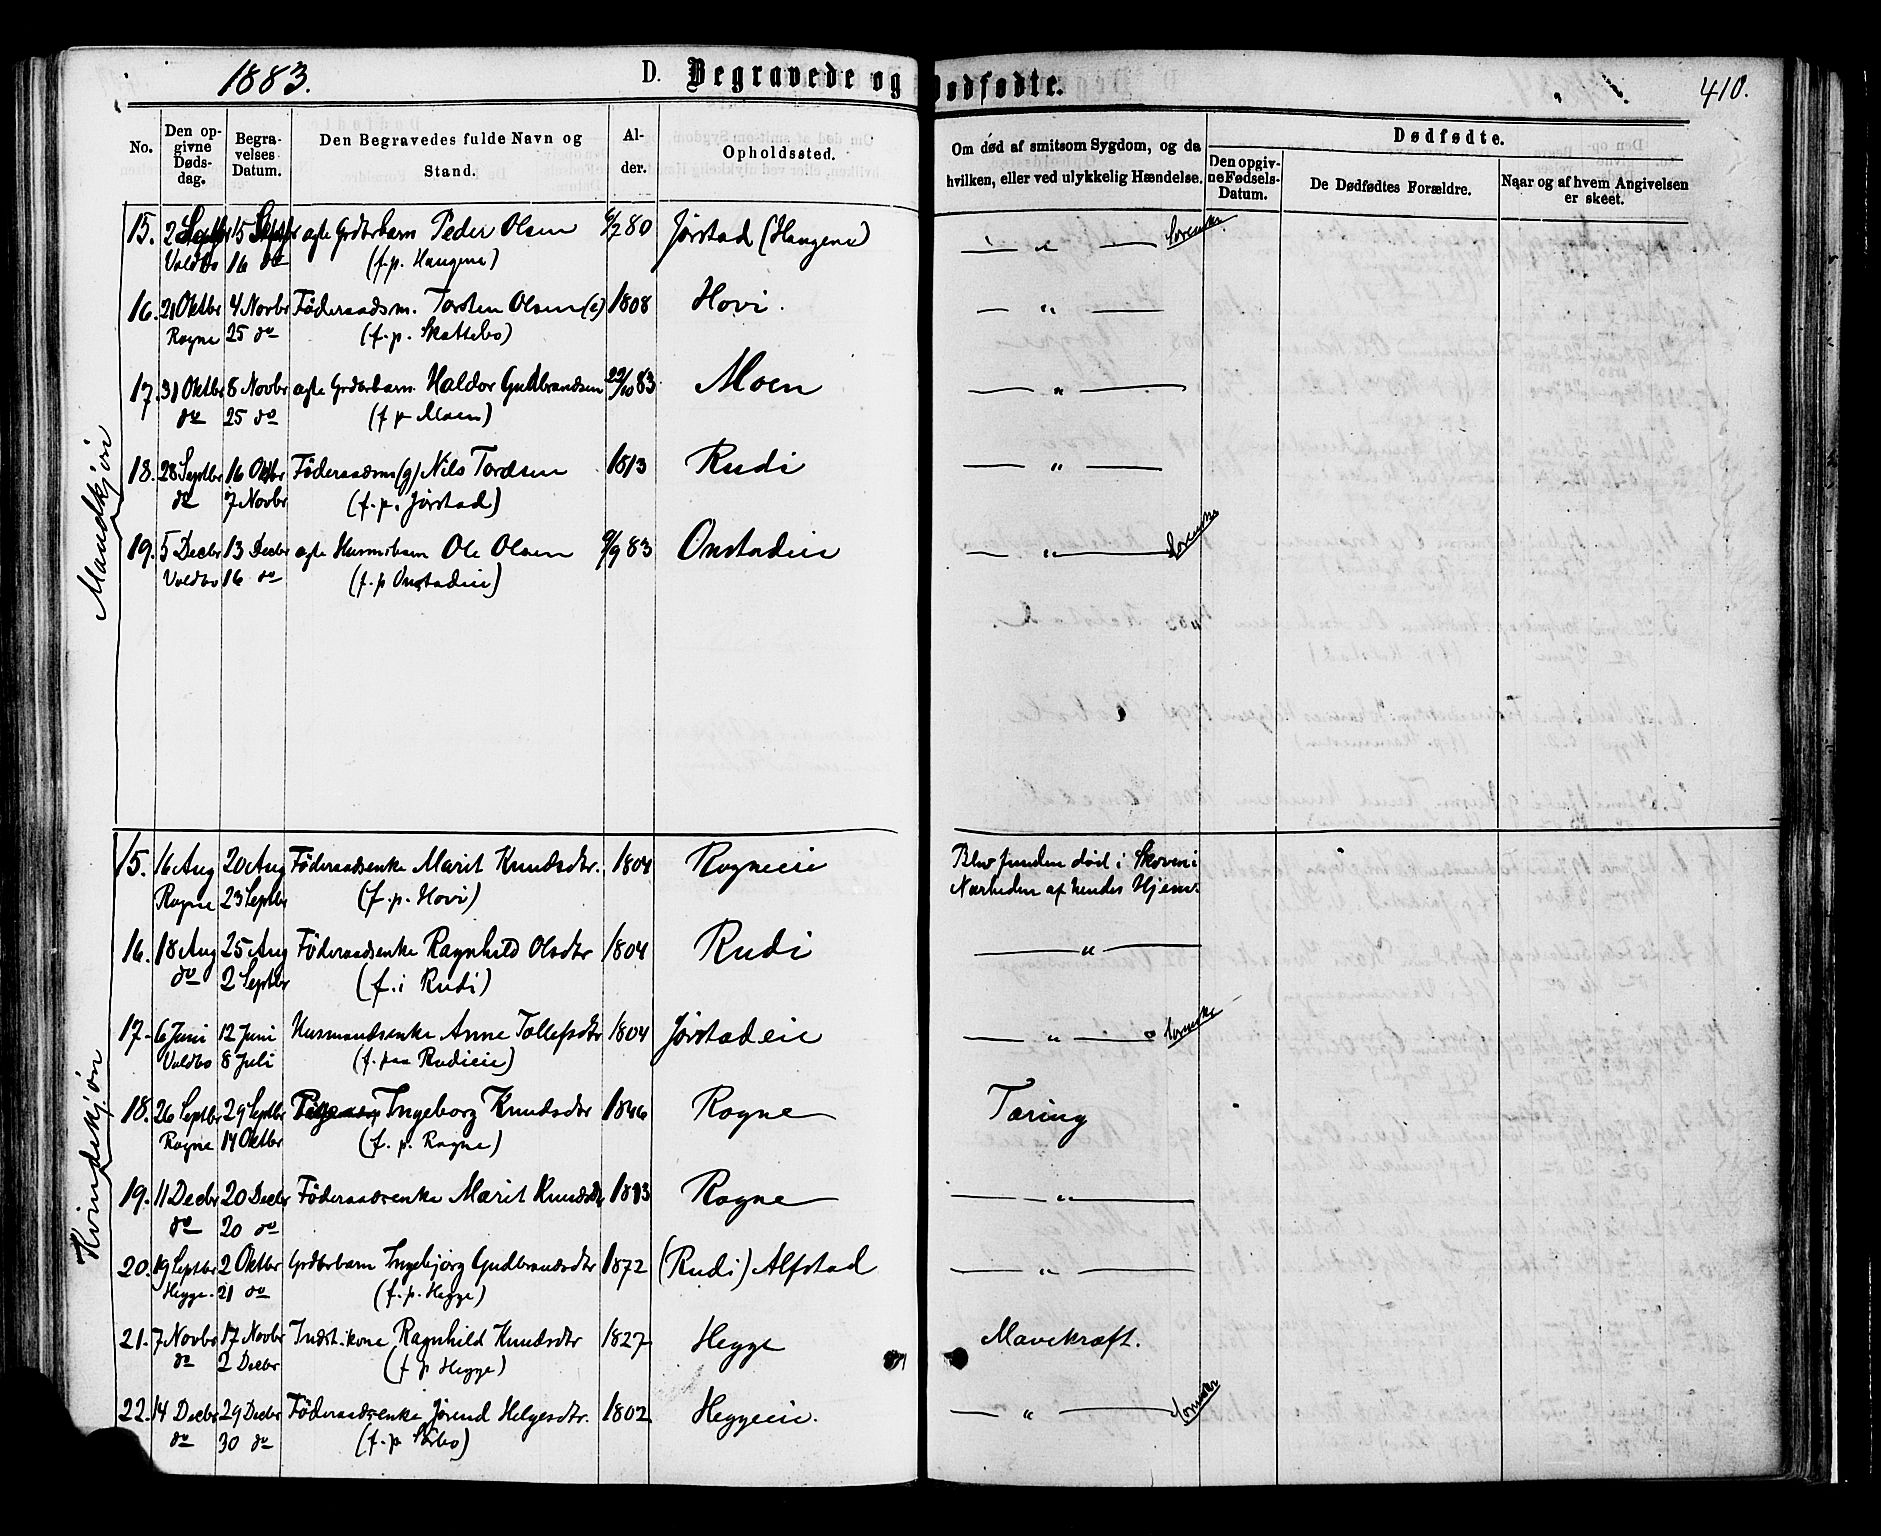 1883.
D. Begravede og Dødfødte.
410.
No.
Den opgivne Dødsdag.
Begravelses Datum.
Den Begravedes fulde Navn og Stand.
Alder.
Opholdssted.
Om død af smitsom Sygdom, og da hvilken, eller ved ulykkelig Hændelse.
Dødfødte.
Den opgivne Fødsels-Datum.
De Dødfødtes Forældre.
Naar og af hvem Angivelsen er skeet.
Mandkjøn
15. 2 Septbr 15 Septbr ægte Grdbrbarn Peder Olsen 6/7 80 Jørstad (Haugene) — " —
Voldbo 16 do (f. p. Haugene)
16. 21 Oktbr 4 Novbr Föderaadsm. Torsten Olsen (e) 1808 Hovi. — " —
Rogne 25 do (f. p. Skattebo)
17. 31 Oktbr 8 Novbr ægte Grdbrbarn Haldor Gudbrandsen 22/10 83 Moen — " —
do 25 do (f p Moen)
18. 28 Septbr 16 Oktbr Föderaadsm (g) Nils Tordsen 1813 Rudi — " —
do 7 Novbr (f. p. Jørstad)
19. 5 Decbr 13 Decbr ægte Husmbarn Ole Olsen 9/9 83 Onstadeie — " —
Voldbo 16 do (f. p Onstadeie)
Kvindekjøn
15. 16 Aug 20 Aug Föderaadsenke Marit Knudsdtr. 1804 Rogneeie Blev funden død i Skoven i
Rogne 23 Septbr (f. p. Hovi) Nærheden af hendes Hjem.
16. 18 Aug 25 Aug Föderaadsenke Ragnhild Olsdtr 1804 Rudi — " —
do 2 Septbr (f. i Rudi)
17. 6 Juni 12 Juni Husmandsenke Anne Tollefsdtr 1804 Jørstadeie — " —
Voldbo 8 Juli (f. paa Rudieie)
18. 26 Septbr 29 Septbr Ingeborg Knudsdtr 1846 Rogne Tæring
Rogne 14 Oktbr (f. p. Rogne)
19. 11 Decbr 20 Decbr Föderaadsenke Marit Knudsdtr 1813 Rogne — " —
do 20 do
20. 19 Septbr 2 Oktbr Grdbrbarn Ingebjørg Gudbrandsdtr 1872 (Rudi) Alfstad — " —
Hegge. 21 do (f. p. Hegge)
21. 7 Novbr 17 Novbr Indst. kone Ragnhild Knudsdtr 1827 Hegge Mavekræft.
do 2 Decbr (f p Hegge)
22. 14 Decbr 29 Decbr Föderaadsenke Jörend Helgesdtr. 1802 Heggeeie. — " —
do 30 do (f. p Sörbo)